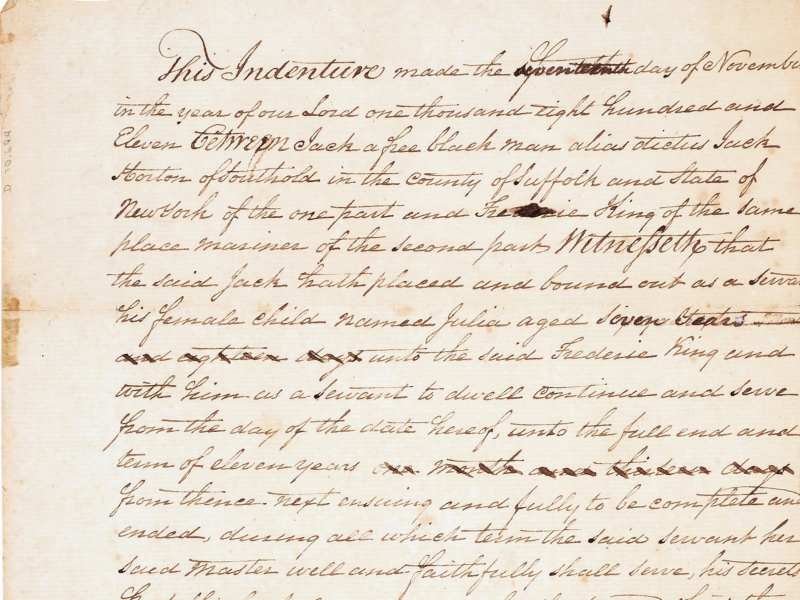 This Indenture made the seventeenth day of Novembe
in the year of our Lord one thousand eight hundred and
Eleven between Jack a free black man alias dictus Jack
Horton of Southold in the county of Suffolk and State of
New York of the one part and Frederic King of the same
place mariner of the second part Witnesseth that
the said Jack hath placed and bound out as a serva
his female child named Julia aged seven years
and eighteen days unto the said Frederic King and
with him as a servant to dwell continue and serve
from the day of the date hereof, unto the full end and
term of eleven years one month and thirteen days
from thence next ensuing and fully to be complete an
ended, during all which term the said servant her
said Master well and faithfully shall serve, his secrets
D 70.694